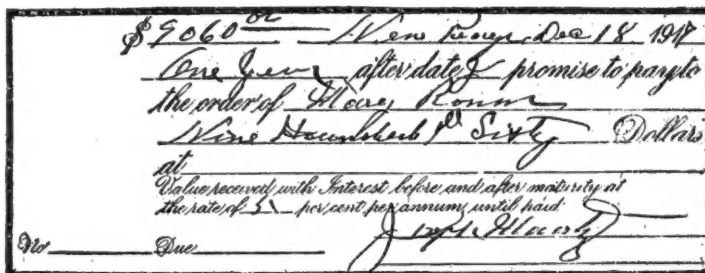 $ 9060 00 Dec 18 1917
One Year after date I promise to pay to
the order of Mary
Nine Sixty Dollars
at
Value received with Interest before and after maturity at
the rate of 5 per cent per annum, until paid.
No Due Joseph